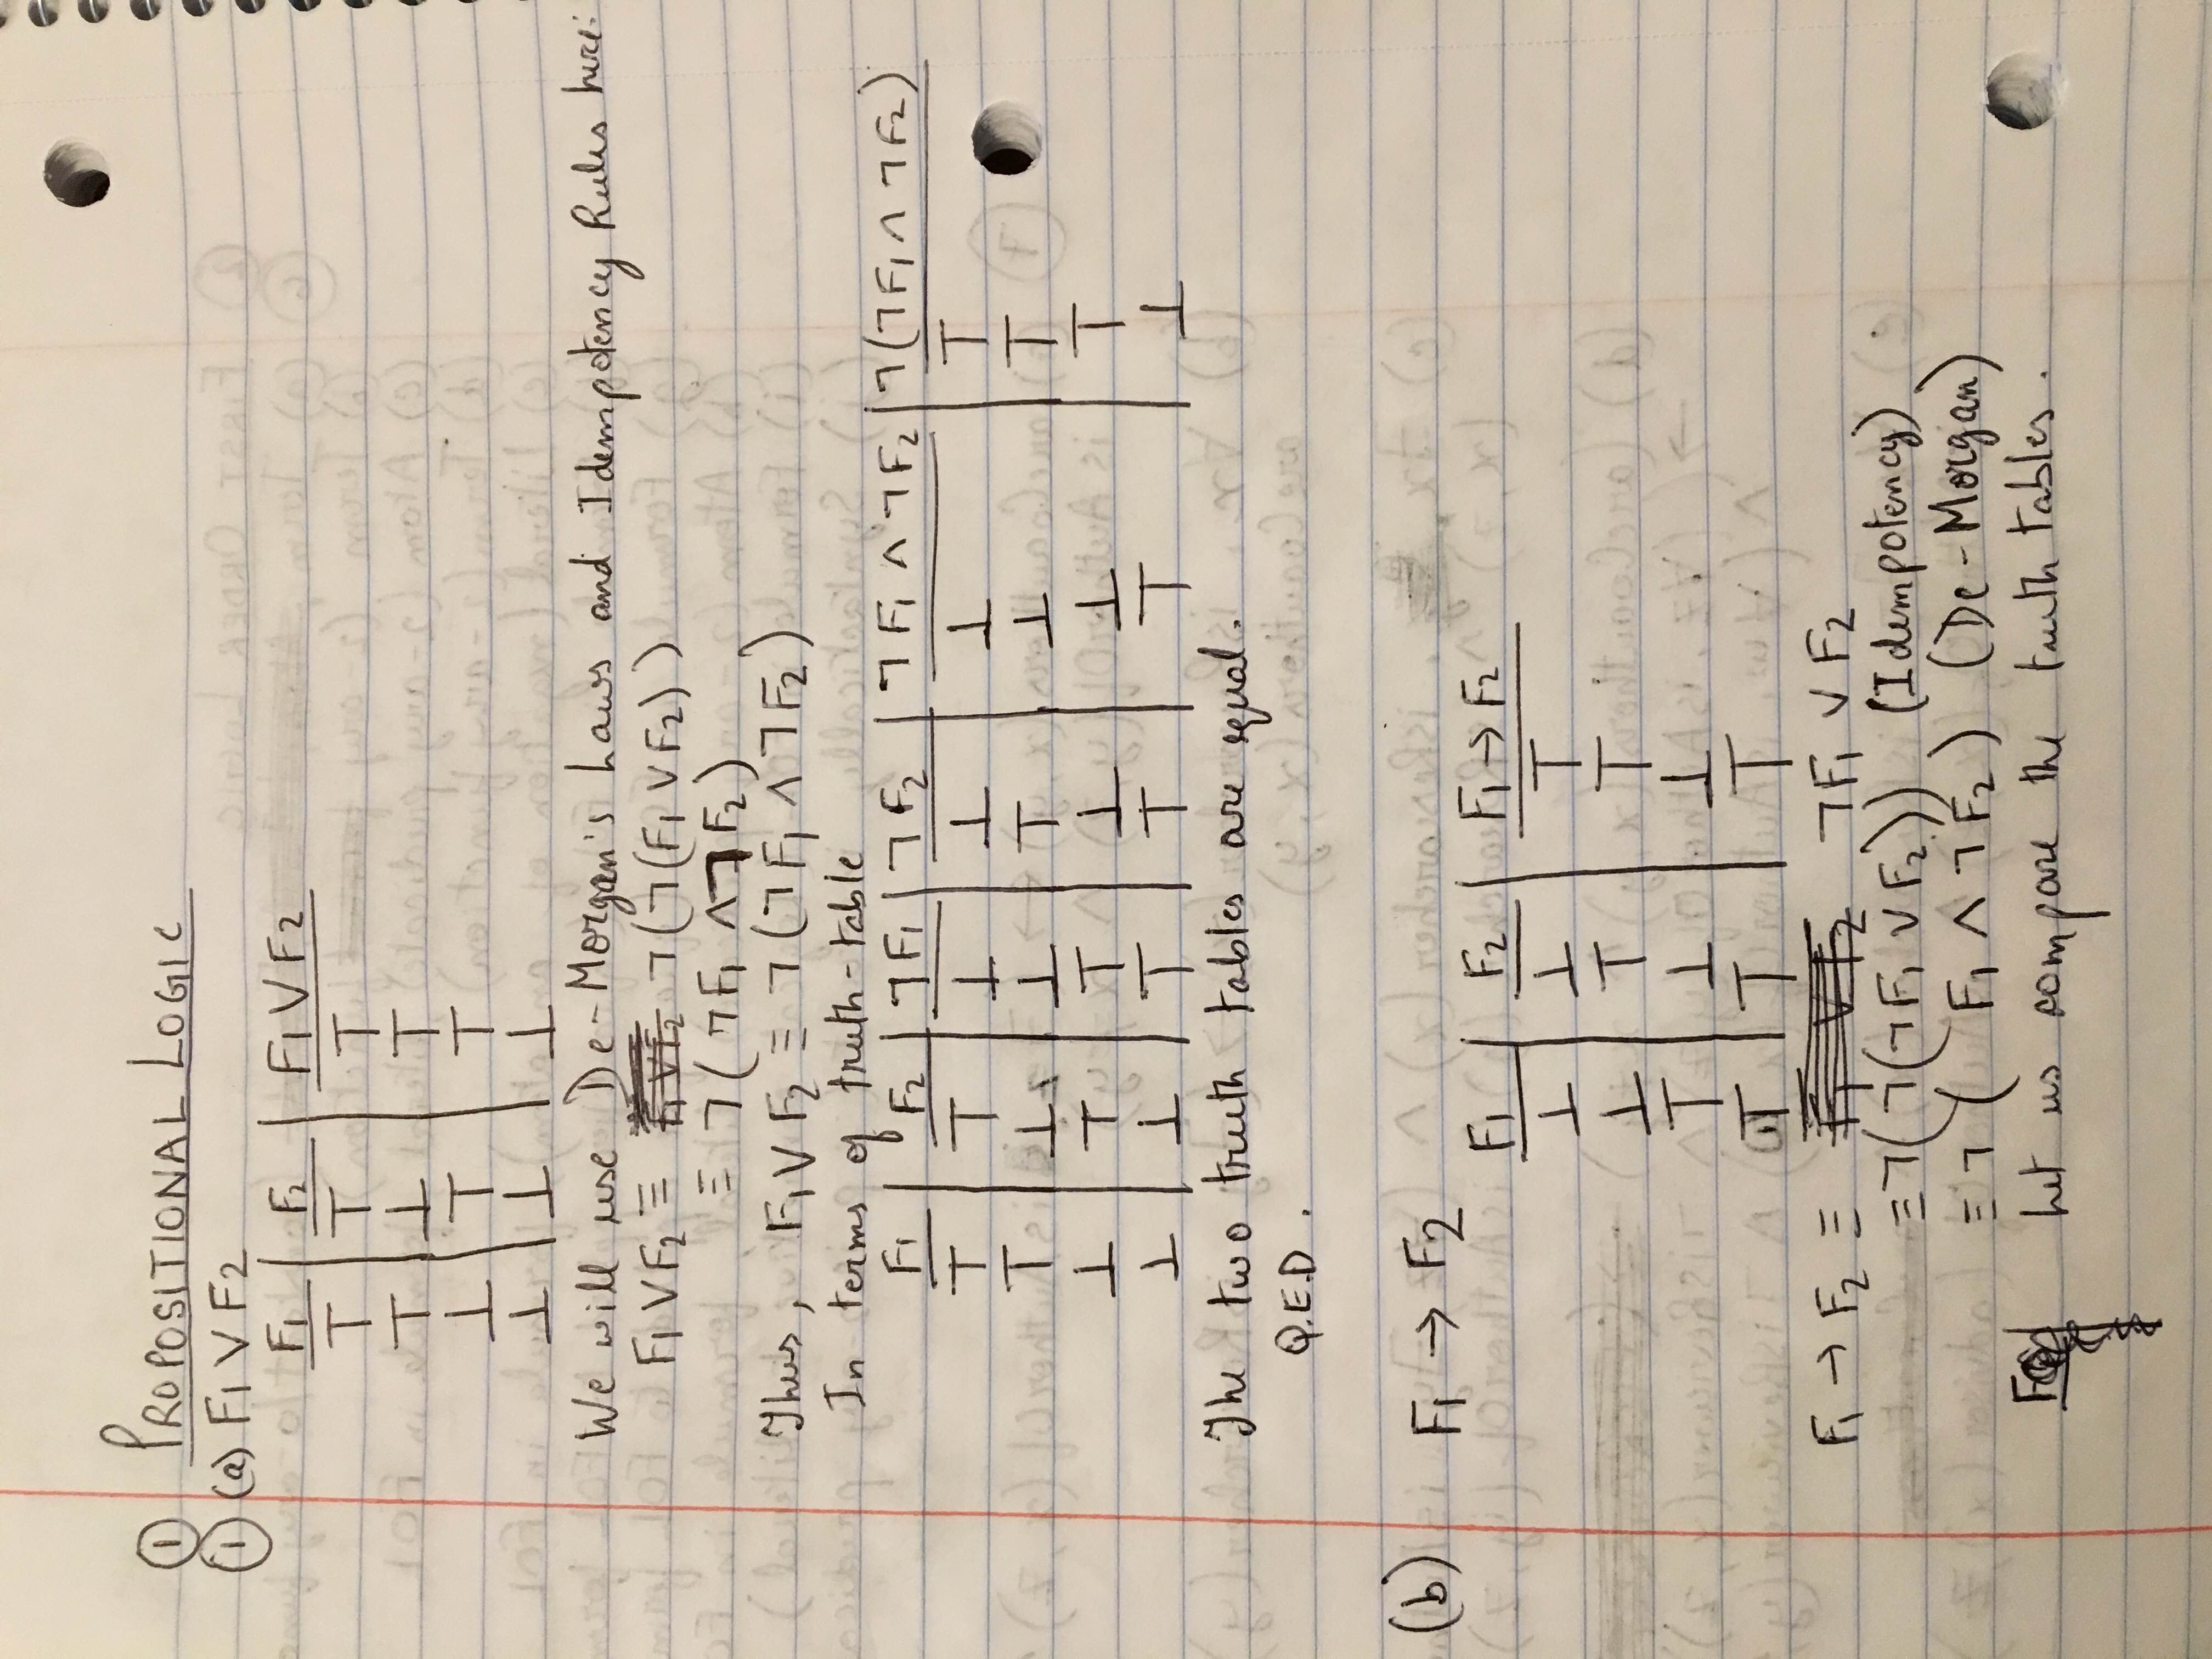 ① PROPOSITIONAL LOGIC
① (a) F₁ ∨ F₂
F₁ | F₂ | F₁ ∨ F₂
⊤ | ⊤ | ⊤
⊤ | ⊥ | ⊤
⊥ | ⊤ | ⊤
⊥ | ⊥ | ⊥
We will use De-Morgan's Laws and Idempotency Rules here:
F₁ ∨ F₂ ≡ ¬(¬(F₁ ∨ F₂))
≡ ¬(¬F₁ ∧ ¬F₂)
Thus, F₁ ∨ F₂ ≡ ¬(¬F₁ ∧ ¬F₂)
In terms of truth-table
F₁ | F₂ | ¬F₁ | ¬F₂ | ¬F₁ ∧ ¬F₂ | ¬(¬F₁ ∧ ¬F₂)
⊤ | ⊤ | ⊥ | ⊥ | ⊥ | ⊤
⊤ | ⊥ | ⊥ | ⊤ | ⊥ | ⊤
⊥ | ⊤ | ⊤ | ⊥ | ⊥ | ⊤
⊥ | ⊥ | ⊤ | ⊤ | ⊤ | ⊥
The two truth tables are equal.
Q.E.D.
(b) F₁ → F₂
F₁ | F₂ | F₁ → F₂
⊥ | ⊥ | ⊤
⊥ | ⊤ | ⊤
⊤ | ⊥ | ⊥
⊤ | ⊤ | ⊤
F₁ → F₂ ≡ ¬F₁ ∨ F₂
≡ ¬(¬(¬F₁ ∨ F₂)) (Idempotency)
≡ ¬( F₁ ∧ ¬F₂) (De-Morgan)
Let us compare the truth tables.